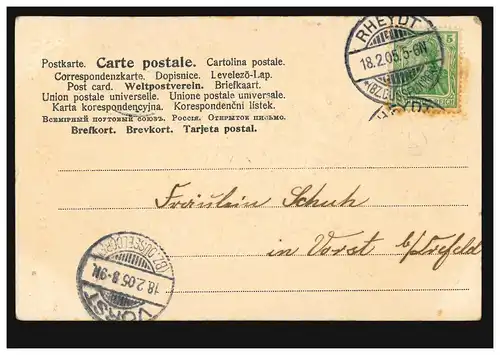 Postkarte. Carte postale. Cartolina postale.
Correspondenzkarte. Dopisnice. Levelező-Lap.
Post card. Weltpostverein. Briefkaart.
Union postale universelle. Unione postale universale.
Karta korespondencyjna. Korespondenční lístek.
Всемірный почтовый союзъ. Россія. Открытое письмо.
Brefkort. Brevkort. Tarjeta postal.
RHEYDT
18.2.05. 5-6N
(BZ. DÜSSELDORF)
5
RHEYDT
Fräulein Schuh
in Vorst b/Crefeld
(BZ. DÜSSELDORF)
18.2.05. 8-9N.
VORST